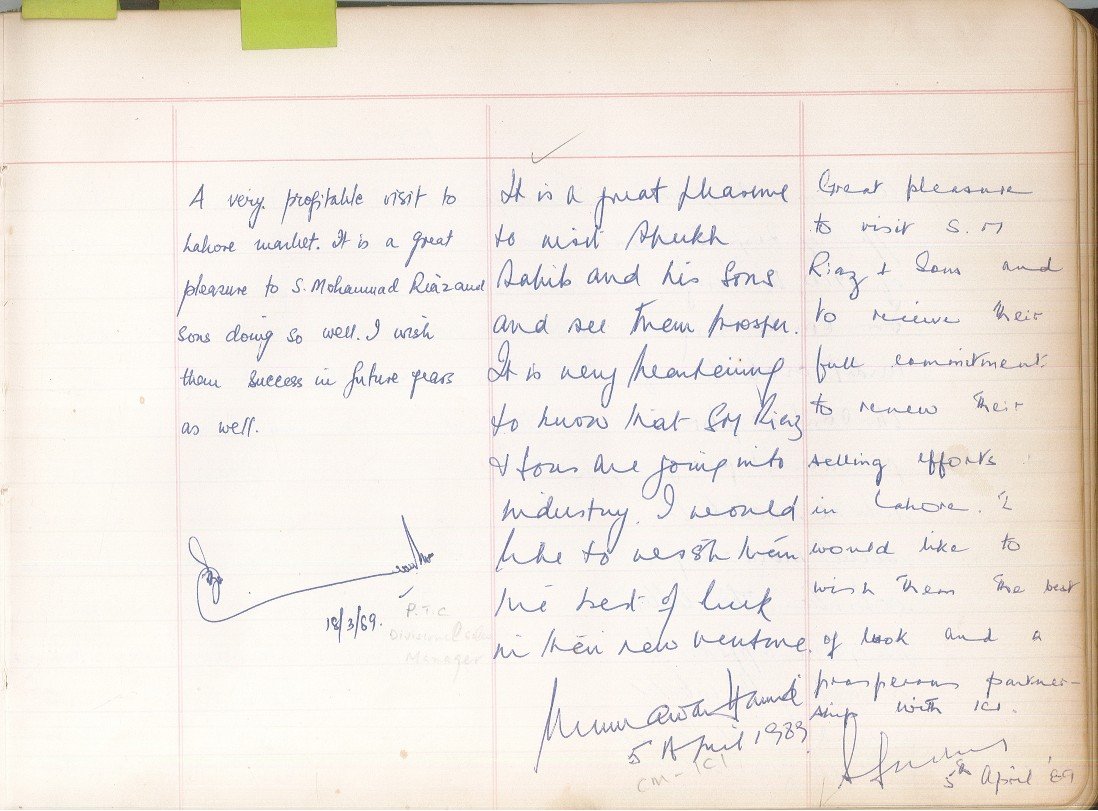 A very profitable visit to
Lahore market. It is a great
pleasure to S. Mohammad Riaz and
Sons doing so well. I wish
them success in future years
as well.
18/3/89.
P.T.C
Manager
It is a great pleasure
to visit Sheikh
Sahib and his sons
and see them prosper.
It is very heartening
to know that SM Riaz
& Sons are going into
industry. I would
like to wish them
the best of luck
in their new venture.
Munnawar Hamid
5 April 1989
CM - ICI
Great pleasure
to visit S. M
Riaz & Sons and
to receive their
full commitment
to renew their
selling efforts
in Lahore. I
would like to
wish them the best
of look and a
prosperous partner-
ship with ICI.
5th April '89